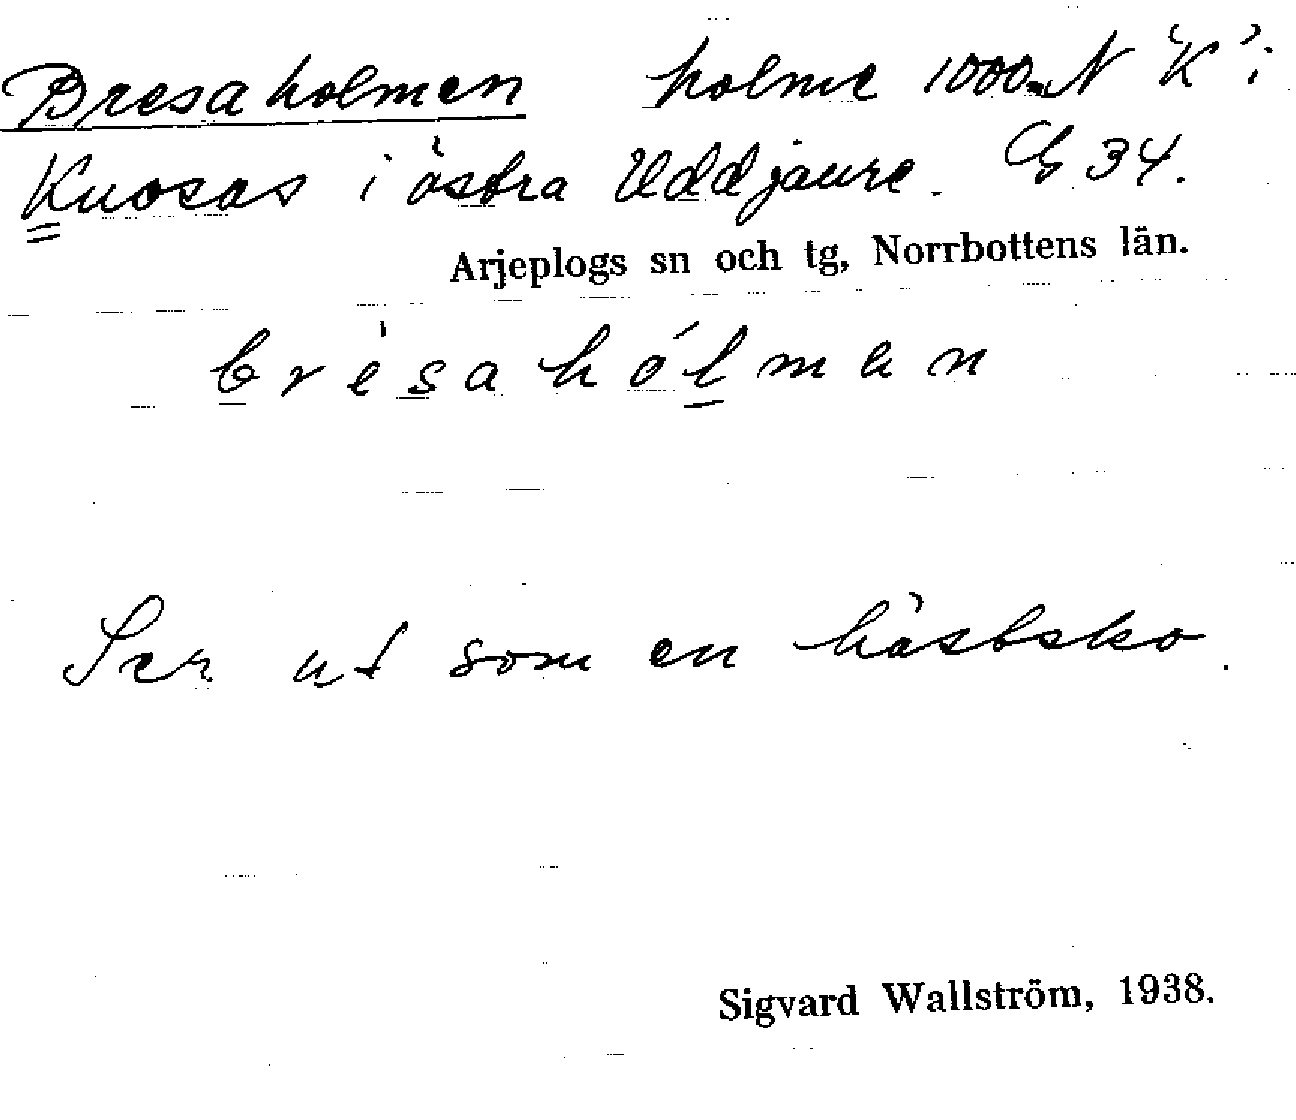 Bresaholmen holme 1000 m N K i
Kuosas i östra Uddjaure. G 34.
Arjeplogs sn och tg, Norrbottens län.
brèsahólman
Ser ut som en hästsko.
Sigvard Wallström, 1938.